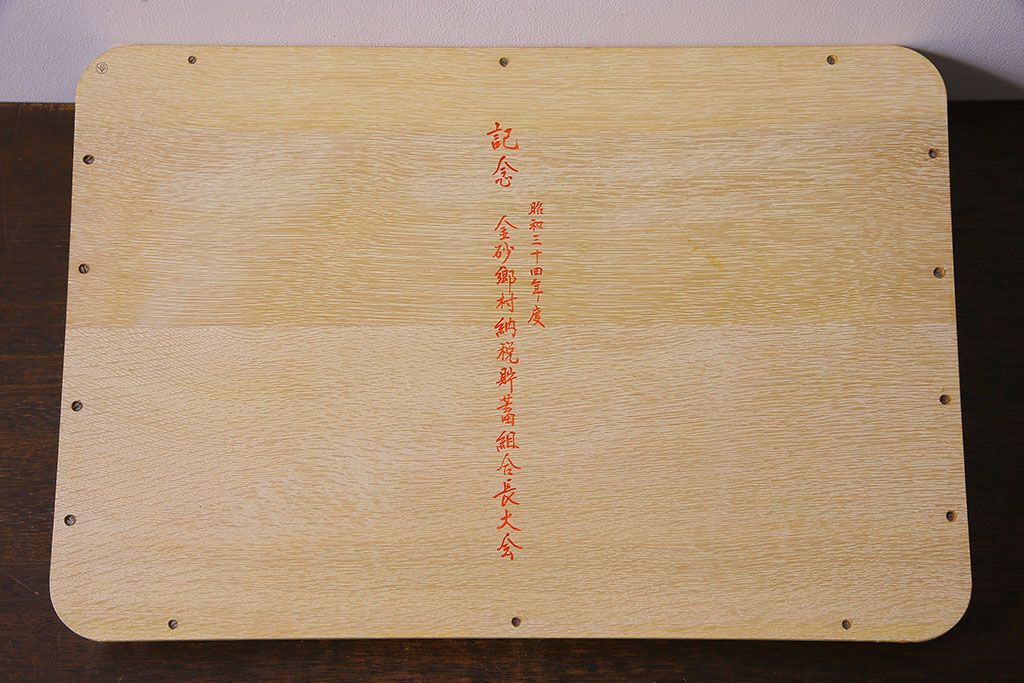 昭和三十四年度
記念 金砂郷村納税貯蓄組合長大会